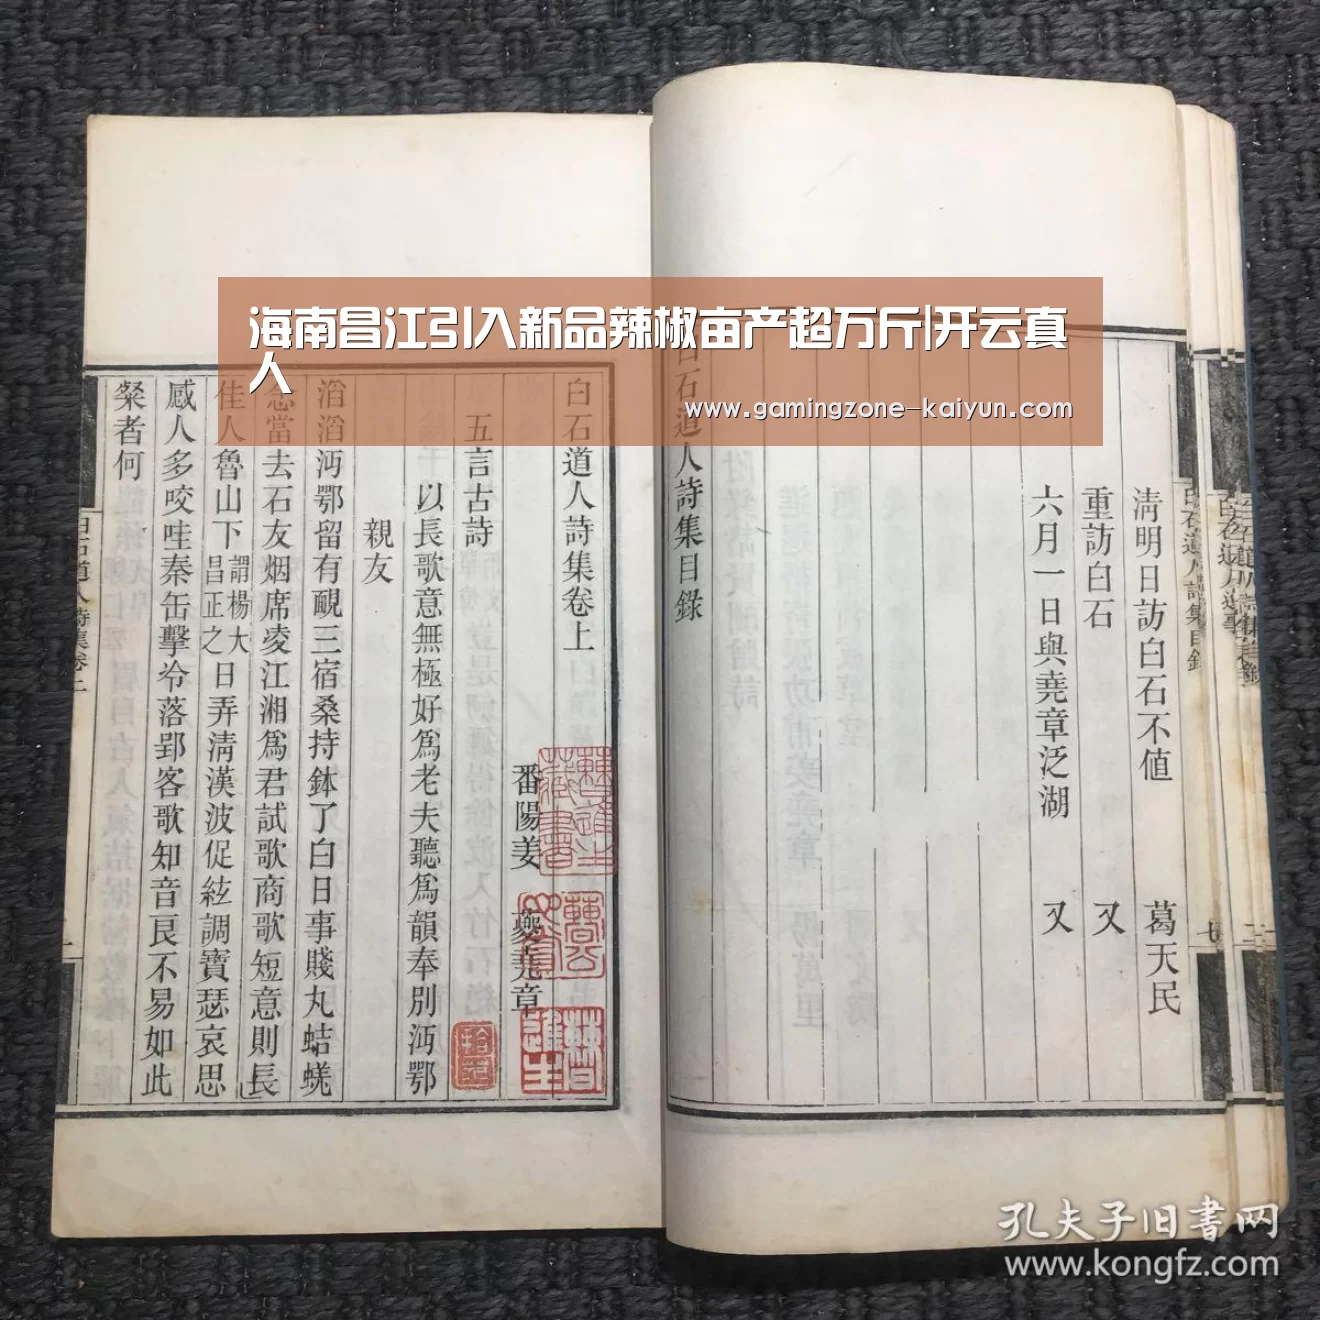 海南昌江引入新品辣椒亩产超万斤|开云真
人
www.gamingzone-kaiyun.com
清明日訪白石不値 葛天民
重訪白石 又
六月一日與堯章泛湖 又
白石道人詩集目錄
白石道人詩集卷上
番陽姜 夔堯章
五言古詩
以長歌意無極好爲老夫聽爲韻奉別沔鄂
親友
滔滔沔鄂留有靦三宿桑持鉢了白日事賤丸蛣蜣
念當去石友烟席凌江湘爲君試歌商歌短意則長
佳人魯山下謂楊大昌正之日弄淸漢波促絃調寶瑟哀思
感人多咬哇秦缶擊冷落郢客歌知音良不易如此
粲者何
白石道人詩集目錄
七
孔夫子旧書网
www.kongfz.com